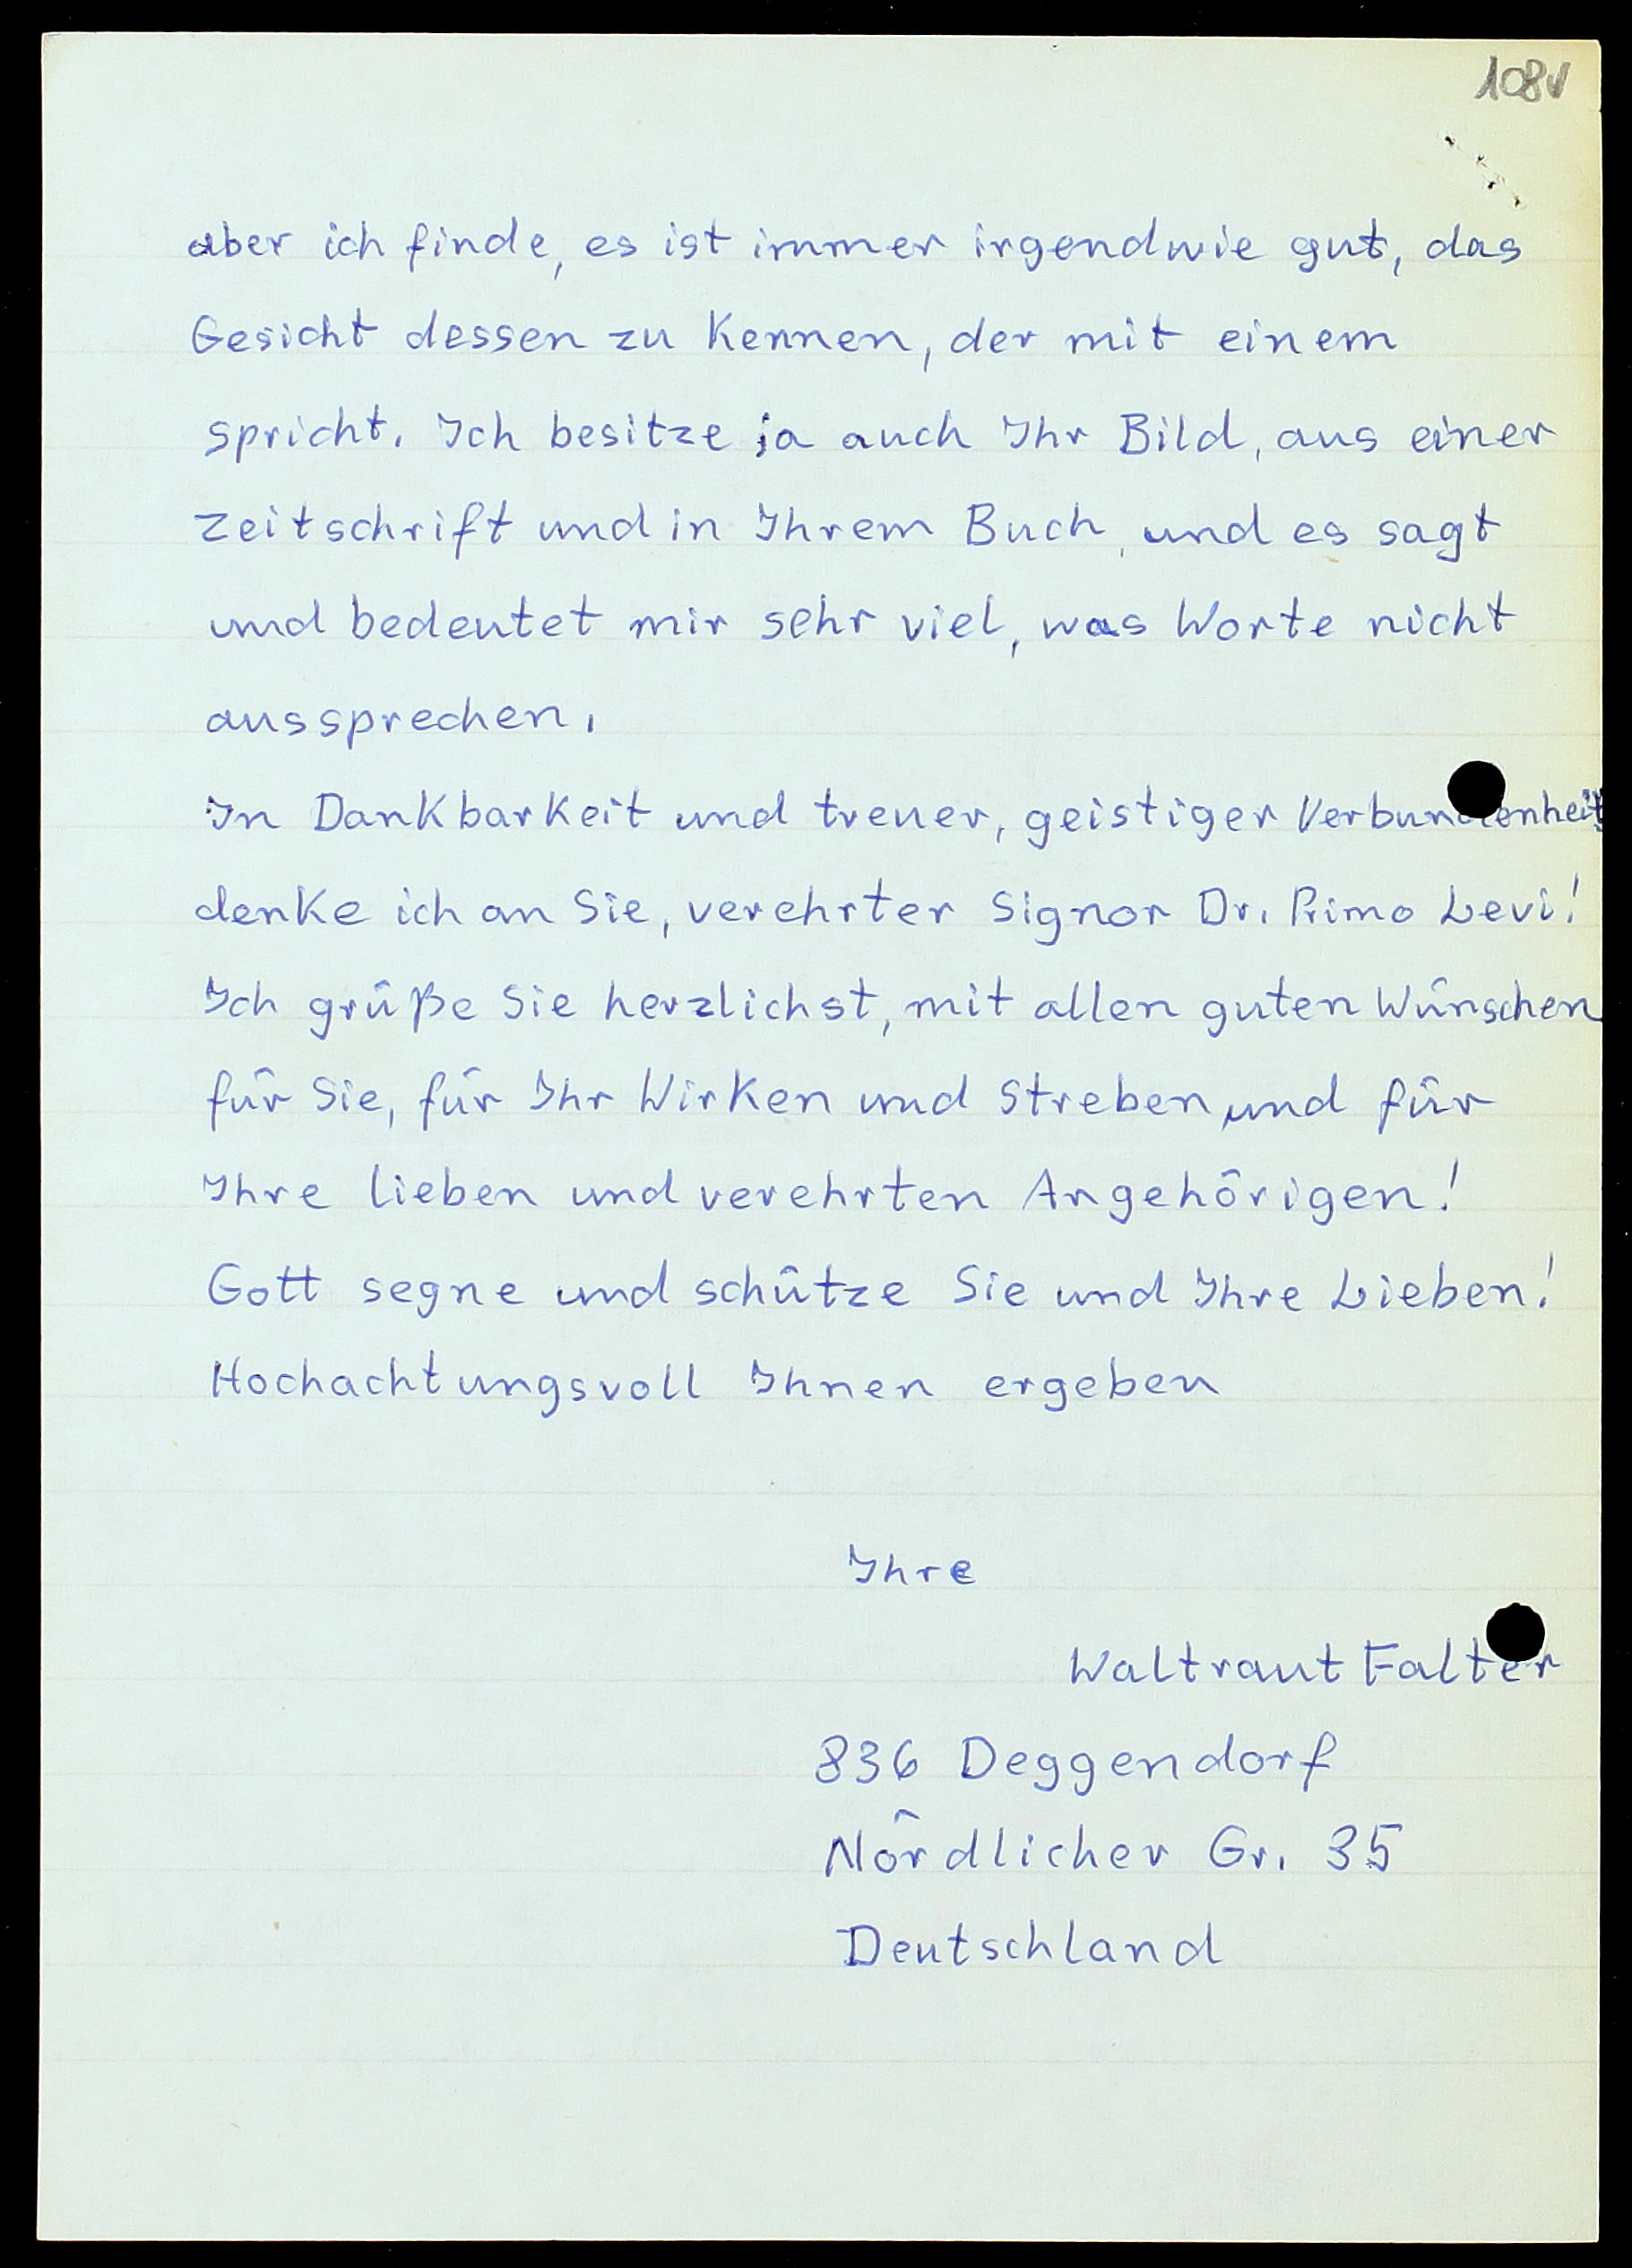 108v
aber ich finde, es ist immer irgendwie gut, das
Gesicht dessen zu kennen, der mit einem
spricht. Ich besitze ja auch Ihr Bild, aus einer
Zeitschrift und in Ihrem Buch, und es sagt
und bedeutet mir sehr viel, was Worte nicht
aussprechen.
In Dankbarkeit und treuer, geistiger Verbundenheit
denke ich an Sie, verehrter Signor Dr. Primo Levi!
Ich grüße Sie herzlichst, mit allen guten Wünschen
für Sie, für Ihr Wirken und Streben, und für
Ihre lieben und verehrten Angehörigen!
Gott segne und schütze Sie und Ihre Lieben!
Hochachtungsvoll Ihnen ergeben
Ihre
Waltraut Falter
836 Deggendorf
Nördlicher Gr. 35
Deutschland